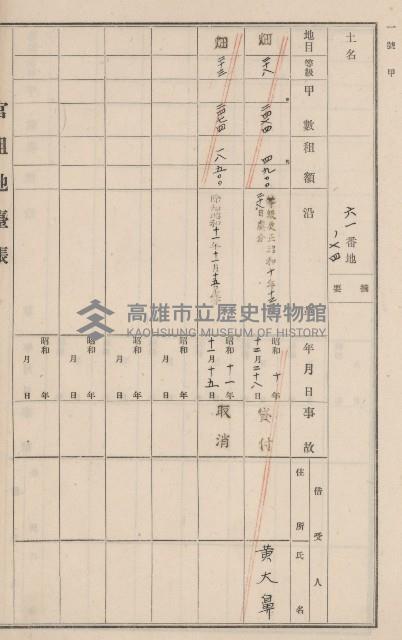 一號甲
土名
六一番地
ノ六四
摘要
地目 等級 甲數 租額 沿 年月日 事故 借受人 住所 氏名
畑 二八 四九〇〇 等級更正昭和十年十二月二八日處分 昭和十年十二月二十八日 貸付 黃大鼻
畑 二三 一八五〇〇 昭和十一年十一月十五日 取消
昭和 年 月 日
昭和 年 月 日
昭和 年 月 日
昭和 年 月 日
官租地臺帳
高雄市立歷史博物館
KAOHSIUNG MUSEUM OF HISTORY